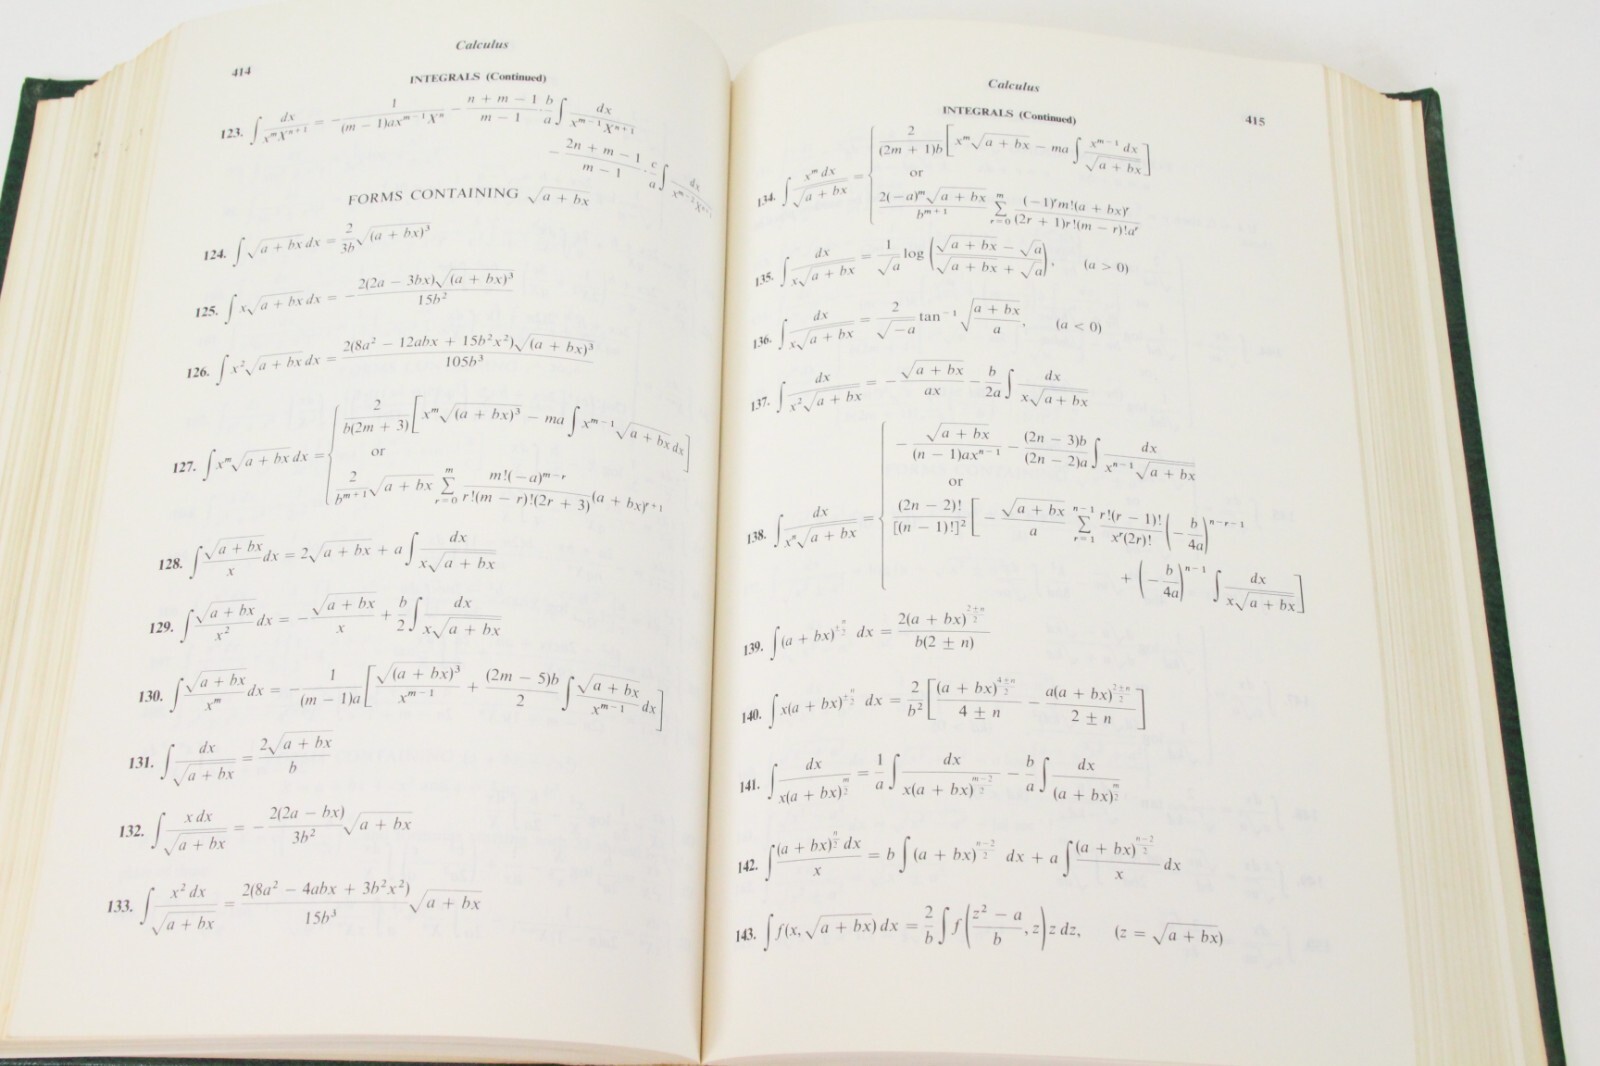 414
Calculus
INTEGRALS (Continued)
123. ∫ dx/(x^m X^(n+1)) = − 1/((m − 1)ax^(m−1) X^n) − (n + m − 1)/(m − 1) · b/a ∫ dx/(x^(m−1) X^(n+1))
− (2n + m − 1)/(m − 1) · c/a ∫ dx/(x^(m−2) X^(n+1))
FORMS CONTAINING √(a + bx)
124. ∫ √(a + bx) dx = 2/(3b) √((a + bx)³)
125. ∫ x√(a + bx) dx = − 2(2a − 3bx)√((a + bx)³)/(15b²)
126. ∫ x²√(a + bx) dx = 2(8a² − 12abx + 15b²x²)√((a + bx)³)/(105b³)
127. ∫ x^m √(a + bx) dx = { 2/(b(2m + 3)) [x^m √((a + bx)³) − ma ∫ x^(m−1) √(a + bx) dx]
or
2/b^(m+1) √(a + bx) Σ_(r=0)^m m!(−a)^(m−r)/(r!(m − r)!(2r + 3)) (a + bx)^(r+1)
128. ∫ √(a + bx)/x dx = 2√(a + bx) + a ∫ dx/(x√(a + bx))
129. ∫ √(a + bx)/x² dx = − √(a + bx)/x + b/2 ∫ dx/(x√(a + bx))
130. ∫ √(a + bx)/x^m dx = − 1/((m − 1)a) [√((a + bx)³)/x^(m−1) + (2m − 5)b/2 ∫ √(a + bx)/x^(m−1) dx]
131. ∫ dx/√(a + bx) = 2√(a + bx)/b
132. ∫ x dx/√(a + bx) = − 2(2a − bx)/(3b²) √(a + bx)
133. ∫ x² dx/√(a + bx) = 2(8a² − 4abx + 3b²x²)/(15b³) √(a + bx)
Calculus
415
INTEGRALS (Continued)
134. ∫ x^m dx/√(a + bx) = { 2/((2m + 1)b) [x^m √(a + bx) − ma ∫ x^(m−1) dx/√(a + bx)]
or
2(−a)^m √(a + bx)/b^(m+1) Σ_(r=0)^m (−1)^r m!(a + bx)^r/((2r + 1)r!(m − r)!a^r)
135. ∫ dx/(x√(a + bx)) = 1/√a log ((√(a + bx) − √a)/(√(a + bx) + √a)), (a > 0)
136. ∫ dx/(x√(a + bx)) = 2/√(−a) tan^(−1) √((a + bx)/a), (a < 0)
137. ∫ dx/(x²√(a + bx)) = − √(a + bx)/(ax) − b/(2a) ∫ dx/(x√(a + bx))
138. ∫ dx/(x^n √(a + bx)) = { − √(a + bx)/((n − 1)ax^(n−1)) − (2n − 3)b/((2n − 2)a) ∫ dx/(x^(n−1) √(a + bx))
or
(2n − 2)!/[(n − 1)!]² [− √(a + bx)/a Σ_(r=1)^(n−1) r!(r − 1)!/(x^r(2r)!) (−b/(4a))^(n−r−1)
+ (−b/(4a))^(n−1) ∫ dx/(x√(a + bx))]
139. ∫ (a + bx)^(±n/2) dx = 2(a + bx)^((2±n)/2)/(b(2 ± n))
140. ∫ x(a + bx)^(±n/2) dx = 2/b² [(a + bx)^((4±n)/2)/(4 ± n) − a(a + bx)^((2±n)/2)/(2 ± n)]
141. ∫ dx/(x(a + bx)^(m/2)) = 1/a ∫ dx/(x(a + bx)^((m−2)/2)) − b/a ∫ dx/((a + bx)^(m/2))
142. ∫ (a + bx)^(n/2) dx/x = b ∫ (a + bx)^((n−2)/2) dx + a ∫ (a + bx)^((n−2)/2)/x dx
143. ∫ f(x, √(a + bx)) dx = 2/b ∫ f((z² − a)/b, z) z dz, (z = √(a + bx))